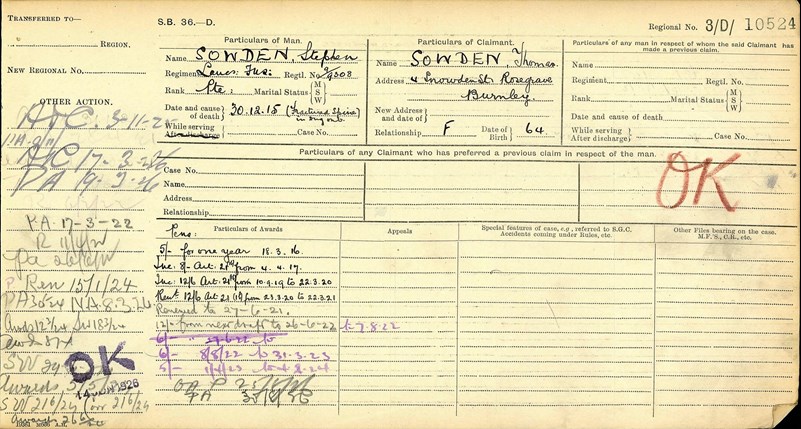 TRANSFERRED TO—
REGION.
NEW REGIONAL NO.
OTHER ACTION.
3-11-25
17-3-26
PA 19-3-26
PA. 17-3-22
Ren 15/1/24
NA 8.3.26
Awds 12 3/24
SW
OK
14 JUN 1926
Awards
SW 216/24
216/24
Awards
S.B. 36.—D.
Regional No. 3/D/ 10524
Particulars of Man.
Name SOWDEN, Stephen
Regiment Lancs: Fus: Regtl. No. 9308
Rank Pte: Marital Status { M S W
Date and cause of death } 30.12.15 (Fractured Spine
While serving After discharge } Case No.
Particulars of Claimant.
Name SOWDEN, Thomas
Address 4 Snowden St. Rosegrove
Burnley.
New Address and date of }
Relationship F Date of Birth } 64.
Particulars of any man in respect of whom the said Claimant has made a previous claim.
Name
Regiment Regtl. No.
Rank Marital Status { M S W
Date and cause of death
While serving After discharge } Case No.
Particulars of any Claimant who has preferred a previous claim in respect of the man.
Case No.
Name
Address
Relationship
OK
Particulars of Awards
Appeals
Special features of case, e.g., referred to S.G.C. Accidents coming under Rules, etc.
Other Files bearing on the case. M.F.S., C.R., etc.
Pens:
5/- for one year 18.3.16.
Inc. 8/- Art. 21 from 4.4.17.
Inc. 12/6 Art. 21 from 10.9.19 to 22.3.20
Rent 12/6 Art 21 (1) from 23.3.20 to 22.3.21
Renewed to 27-6-21.
12/- from next draft to 26-6-22 to 7.8.22
6/-
6/- 8/8/22 to 31-3-23
5/- 1/4/23 to 4-8-24